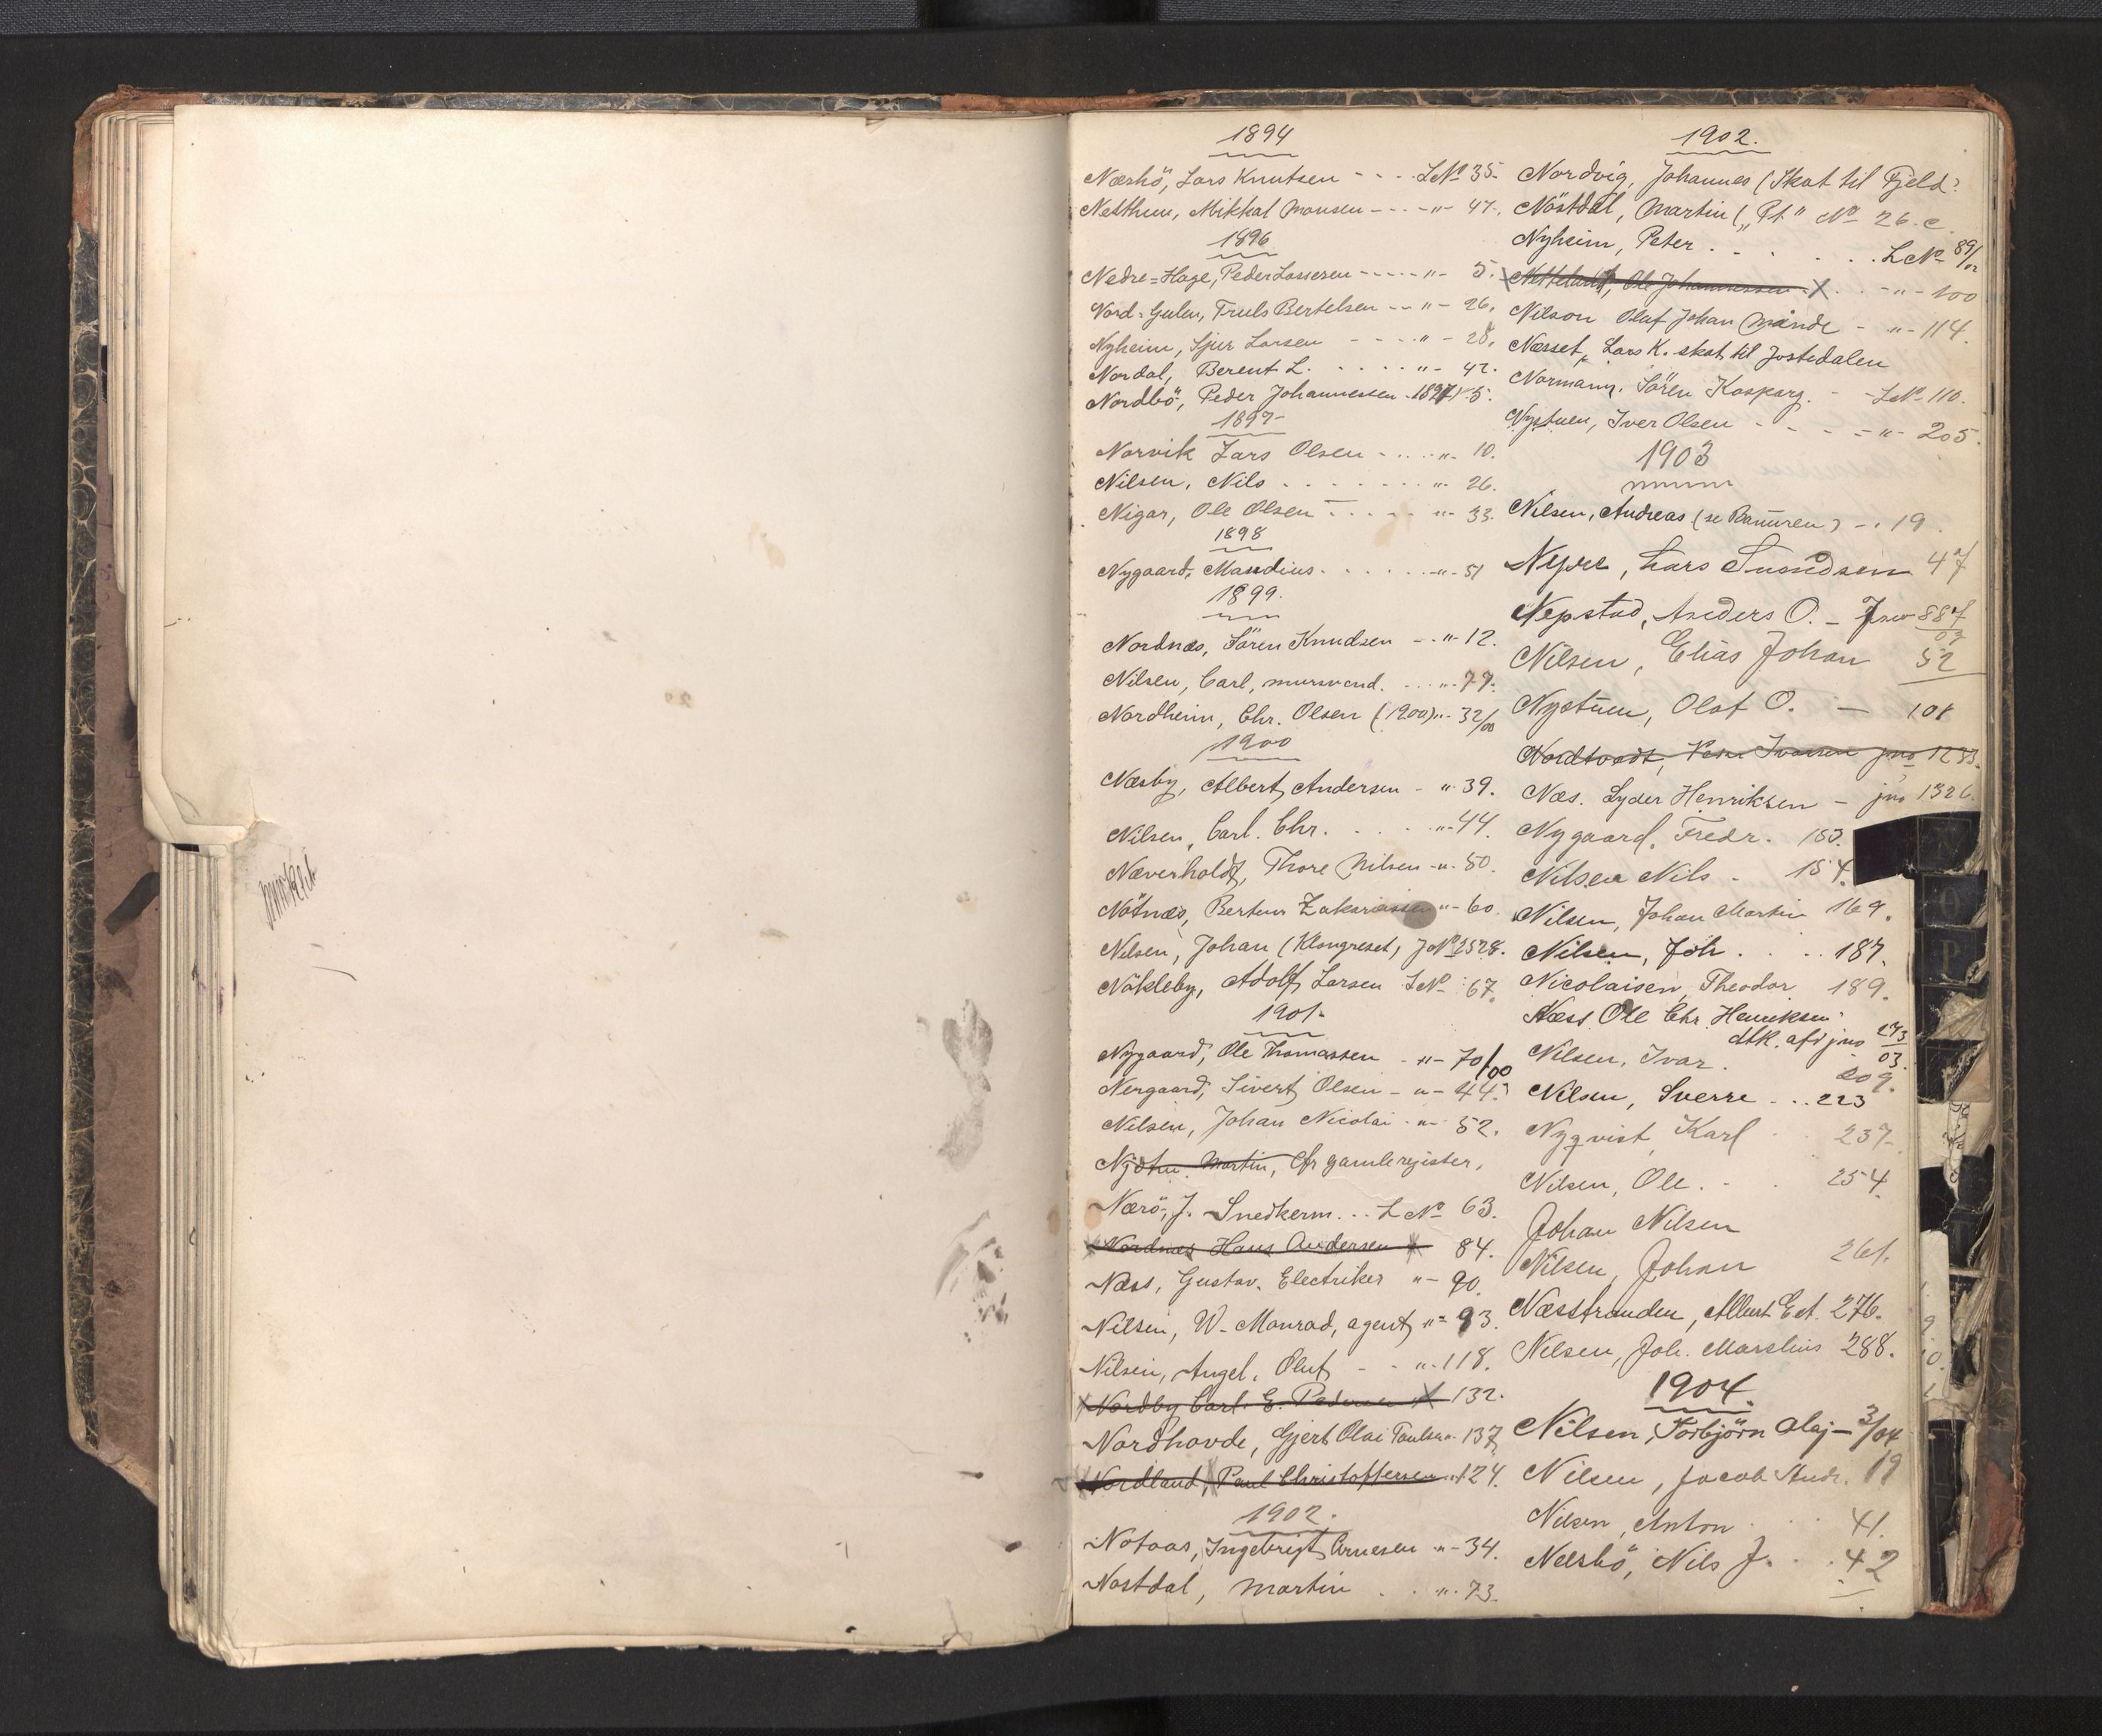 1894
Nærhö, Lars Knutsen - - - LNo 35.
Mikkal Monsen - - - " - 47.
1896
Nedre=Hage, Peder Lassesen - - - - " - 5.
Nord=Gulen, Truls Bertelsen - - " - 26.
Nyheim, Sjur Larsen - - - " - 28.
Nordal, Berent L. . . . . " - 42.
Nordbö, Peder Johannessen . 1897 5.
1897
Norvik Lars Olsen - . . . " - 10.
Nilsen, Nils . . . . . . . " - 26.
Nigar, Ole Olsen - . . . . " - 33.
1898
Nygaard, Mandius . . . . . " - 51
1899.
Nordnæs, Sören Knudsen - - " - 12.
Nilsen, Carl, mursvend. - . . " - 77.
Nordheim, Chr. Olsen (1900) " - 32/00
1900
Næsby, Albert Andersen - " 39.
Nilsen, Carl. Chr. . . . . " - 44.
Næverholdt, Thore Nilsen - " - 50.
Nötnæs, Zakariassen " - 60.
Nilsen, Johan (Klongreset) JNo 2528.
Nökleby, Adolf Larsen LNo 67.
1901.
Nygaard, Ole Thomassen - " - 70/00
Nergaard, Sivert Olsen - " - 44.
Nilsen, Johan Nicolai . " - 52.
Martin, cfr gamle register.
Nærö, J. Snedkerm. . . LNo 63.
Nordnæs Hans Andersen 84.
Næss, Gustav. Electriker " - 90.
Nilsen, W. Monrad, agent, " - 93.
Nilsen, Angel. Oluf, - - " - 118.
Nordby Carl E. Pedersen 132.
Nordhovde, Gjert Olai Paulsen . 137
Nordland, Paul Christoffersen " 124.
1902.
Notaas, Ingebrigt Arnesen " - 34.
Nostdal, Martin . . " . 73.
1902.
Nordvig, Johannes (Skat til Fjeld?
Nöstdal, Martin ("Pt" No 26.c.
Nyheim, Peter . - . . . LNo 89/02
Netteland, Ole Johannessen X . . - " - 100
Nilson Oluf Johan Månde - " - 114.
Næsset, Lars K. skat til Jostedalen
Normann, Sören Kasparg. - - LNo 110.
Nystuen, Iver Olsen - - - - = " - 205.
1903
Nilsen, Andreas (se ) - . 19.
Lars 47
Nepstad, Anders O. - Jno 887/03
Nilsen, Elias Johan 52
Nystuen, Olaf O. — 108
Nordtvedt, Iversen jno 1233.
Næs. Lyder Henriksen - jno 1326.
Nygaard, Fredr. 153.
Nilsen Nils - 154.
Nilsen, Johan Martin 169.
Nilsen, Joh . . . . 187.
Nicolaisen, Theodor 189.
Næss Ole Chr. Henriksen
afd jno 273/03.
Nilsen, Ivar . 209.
Nilsen, Sverre . . . 223
Nyqvist, Karl . . 237.
Nilsen, Ole. - . 254.
Johan Nilsen
Nilsen, Johan 261.
Næsstranden, Albert Ed. 276.
Nilsen, Joh. Marselius 288.
1904.
Nilsen, Torbjörn Olaj - 3/04
Nilsen, Jacob Andr. 19
Nilsen, Anton . . . 41.
Nils J. . . . 42
N
O
P